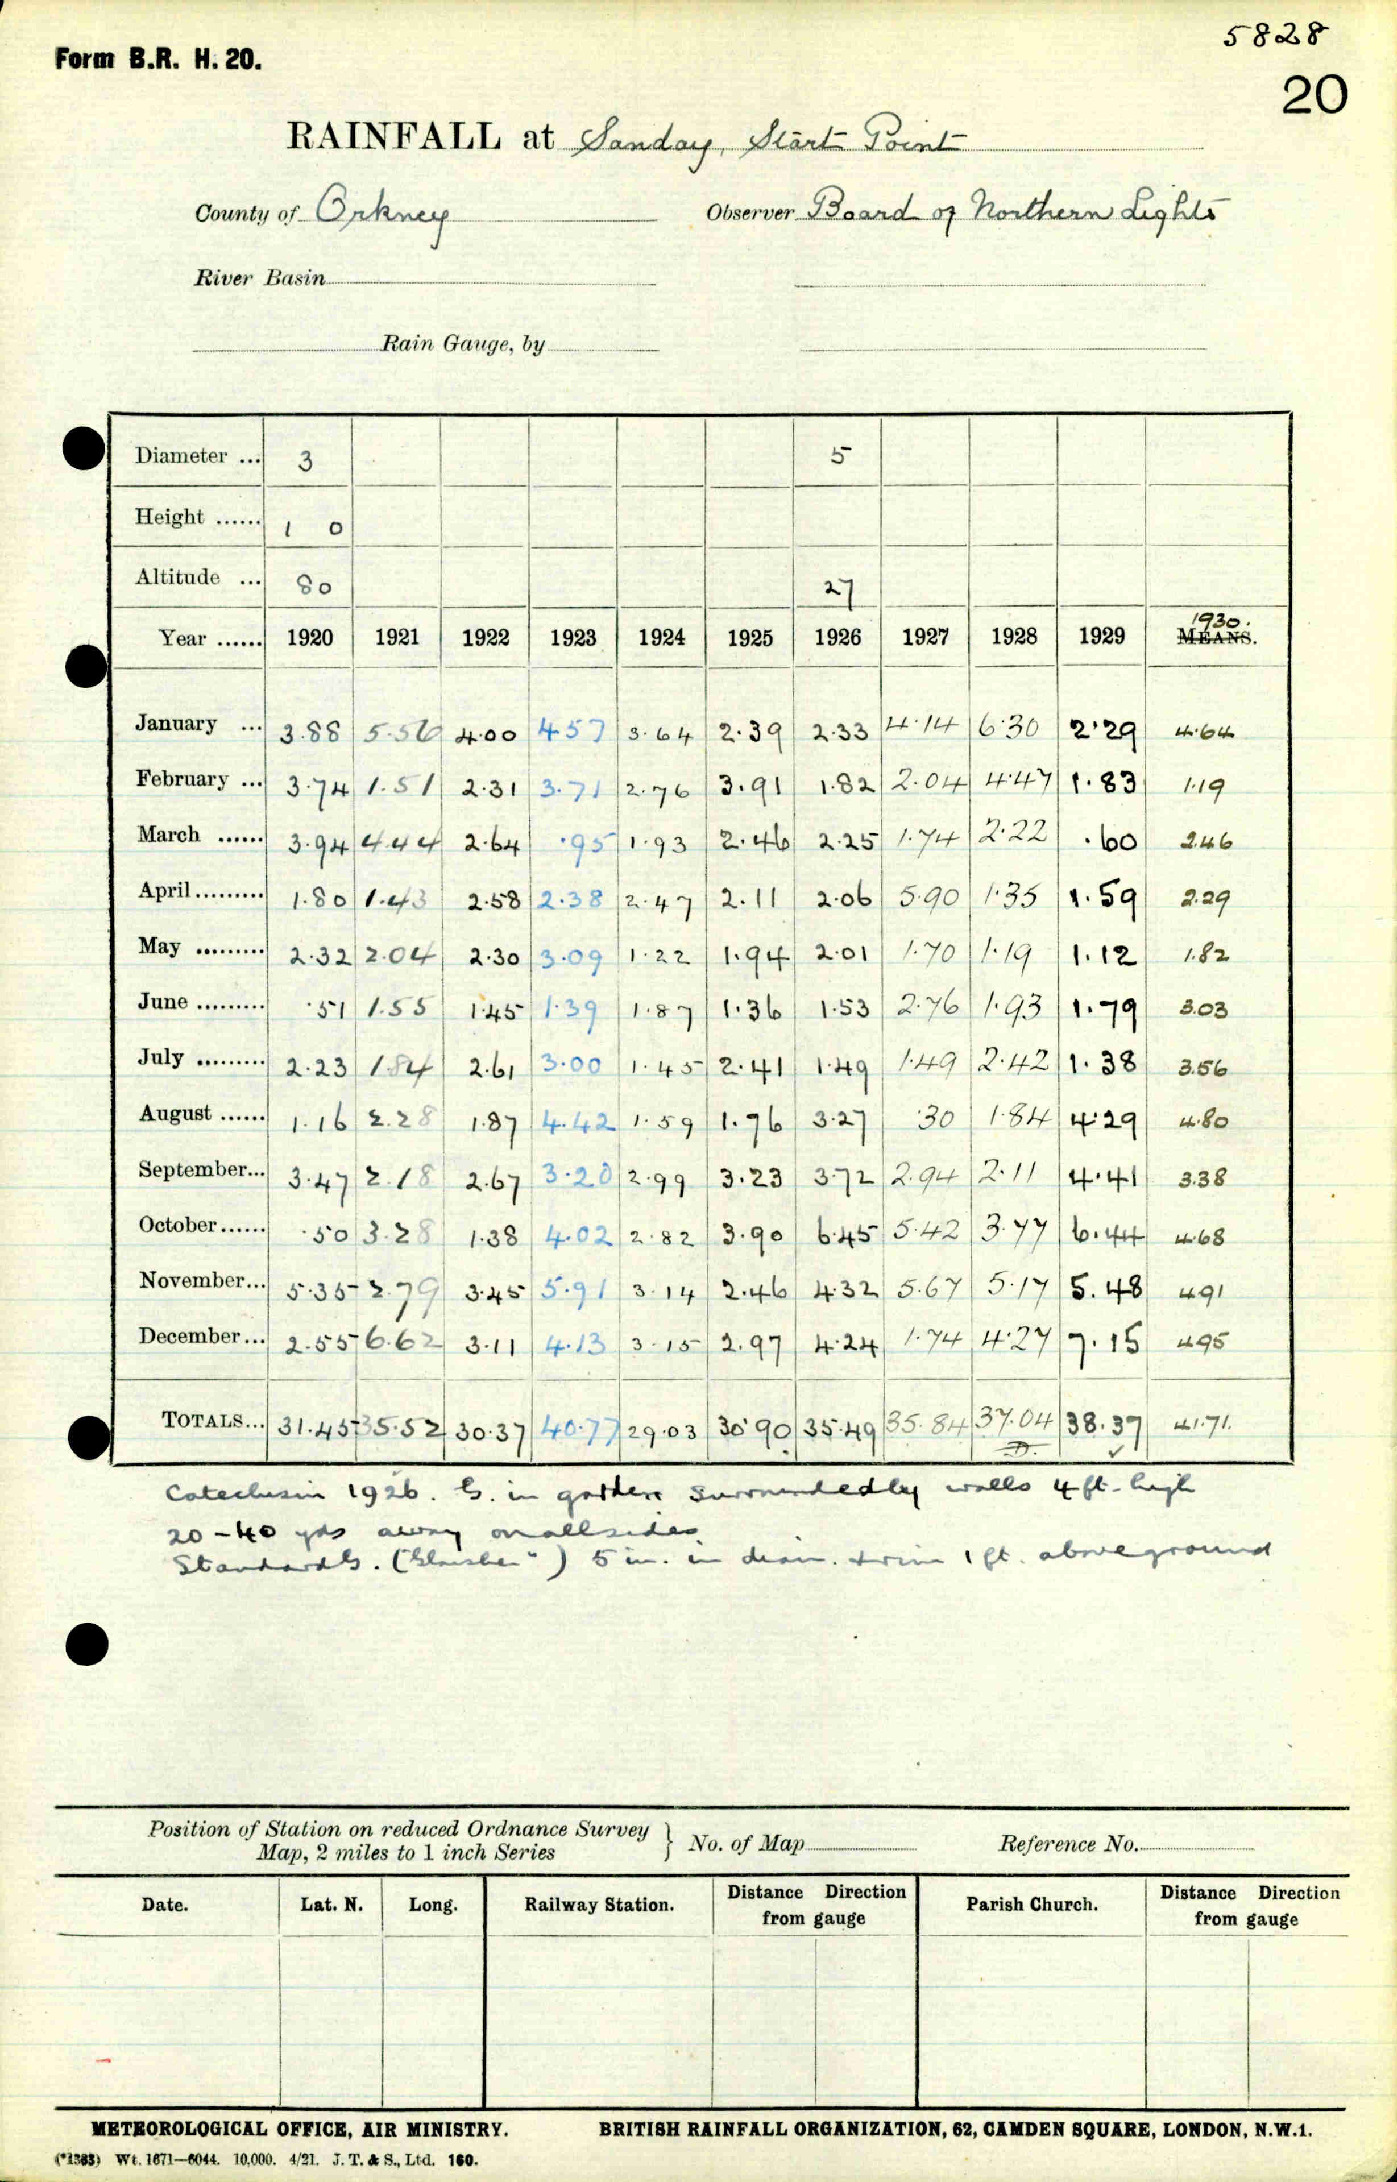 5828
Form B.R. H. 20.
20
RAINFALL at Sanday, Start Point
County of Orkney Observer Board of Northern Lights
River Basin
Rain Gauge, by
Diameter ... 3 5
Height ...... 1 0
Altitude ... 80 27
Year ...... 1920 1921 1922 1923 1924 1925 1926 1927 1928 1929 1930. MEANS.
January ... 3.88 5.56 4.00 4.57 3.64 2.39 2.33 4.14 6.30 2.29 4.64
February ... 3.74 1.51 2.31 3.71 2.76 3.91 1.82 2.04 4.47 1.83 1.19
March ...... 3.94 4.44 2.64 .95 1.93 2.46 2.25 1.74 2.22 .60 2.46
April......... 1.80 1.43 2.58 2.38 2.47 2.11 2.06 5.90 1.35 1.59 2.29
May ......... 2.32 2.04 2.30 3.09 1.22 1.94 2.01 1.70 1.19 1.12 1.82
June ......... .51 1.55 1.45 1.39 1.87 1.36 1.53 2.76 1.93 1.79 3.03
July ......... 2.23 1.84 2.61 3.00 1.45 2.41 1.49 1.49 2.42 1.38 3.56
August ...... 1.16 2.28 1.87 4.42 1.59 1.76 3.27 .30 1.84 4.29 4.80
September... 3.47 2.18 2.67 3.20 2.99 3.23 3.72 2.94 2.11 4.41 3.38
October...... .50 3.28 1.38 4.02 2.82 3.90 6.45 5.42 3.77 6.44 4.68
November... 5.35 2.79 3.45 5.91 3.14 2.46 4.32 5.67 5.17 5.48 4.91
December... 2.55 6.62 3.11 4.13 3.15 2.97 4.24 1.74 4.27 7.15 4.95
TOTALS... 31.45 35.52 30.37 40.77 29.03 30.90 35.49 35.84 37.04 38.37 41.71.
D. ✓
1926. G. in garden surrounded by walls 4 ft. high
20-40 yds away on all sides
Standard G. ("Glaisher") 5 in. in diam. + rim 1 ft. above ground
Position of Station on reduced Ordnance Survey Map, 2 miles to 1 inch Series } No. of Map Reference No.
Date. Lat. N. Long. Railway Station. Distance Direction from gauge Parish Church. Distance Direction from gauge
METEOROLOGICAL OFFICE, AIR MINISTRY. BRITISH RAINFALL ORGANIZATION, 62, CAMDEN SQUARE, LONDON, N.W.1.
(*1383) Wt. 1671—6044. 10,000. 4/21. J. T. & S., Ltd. 160.